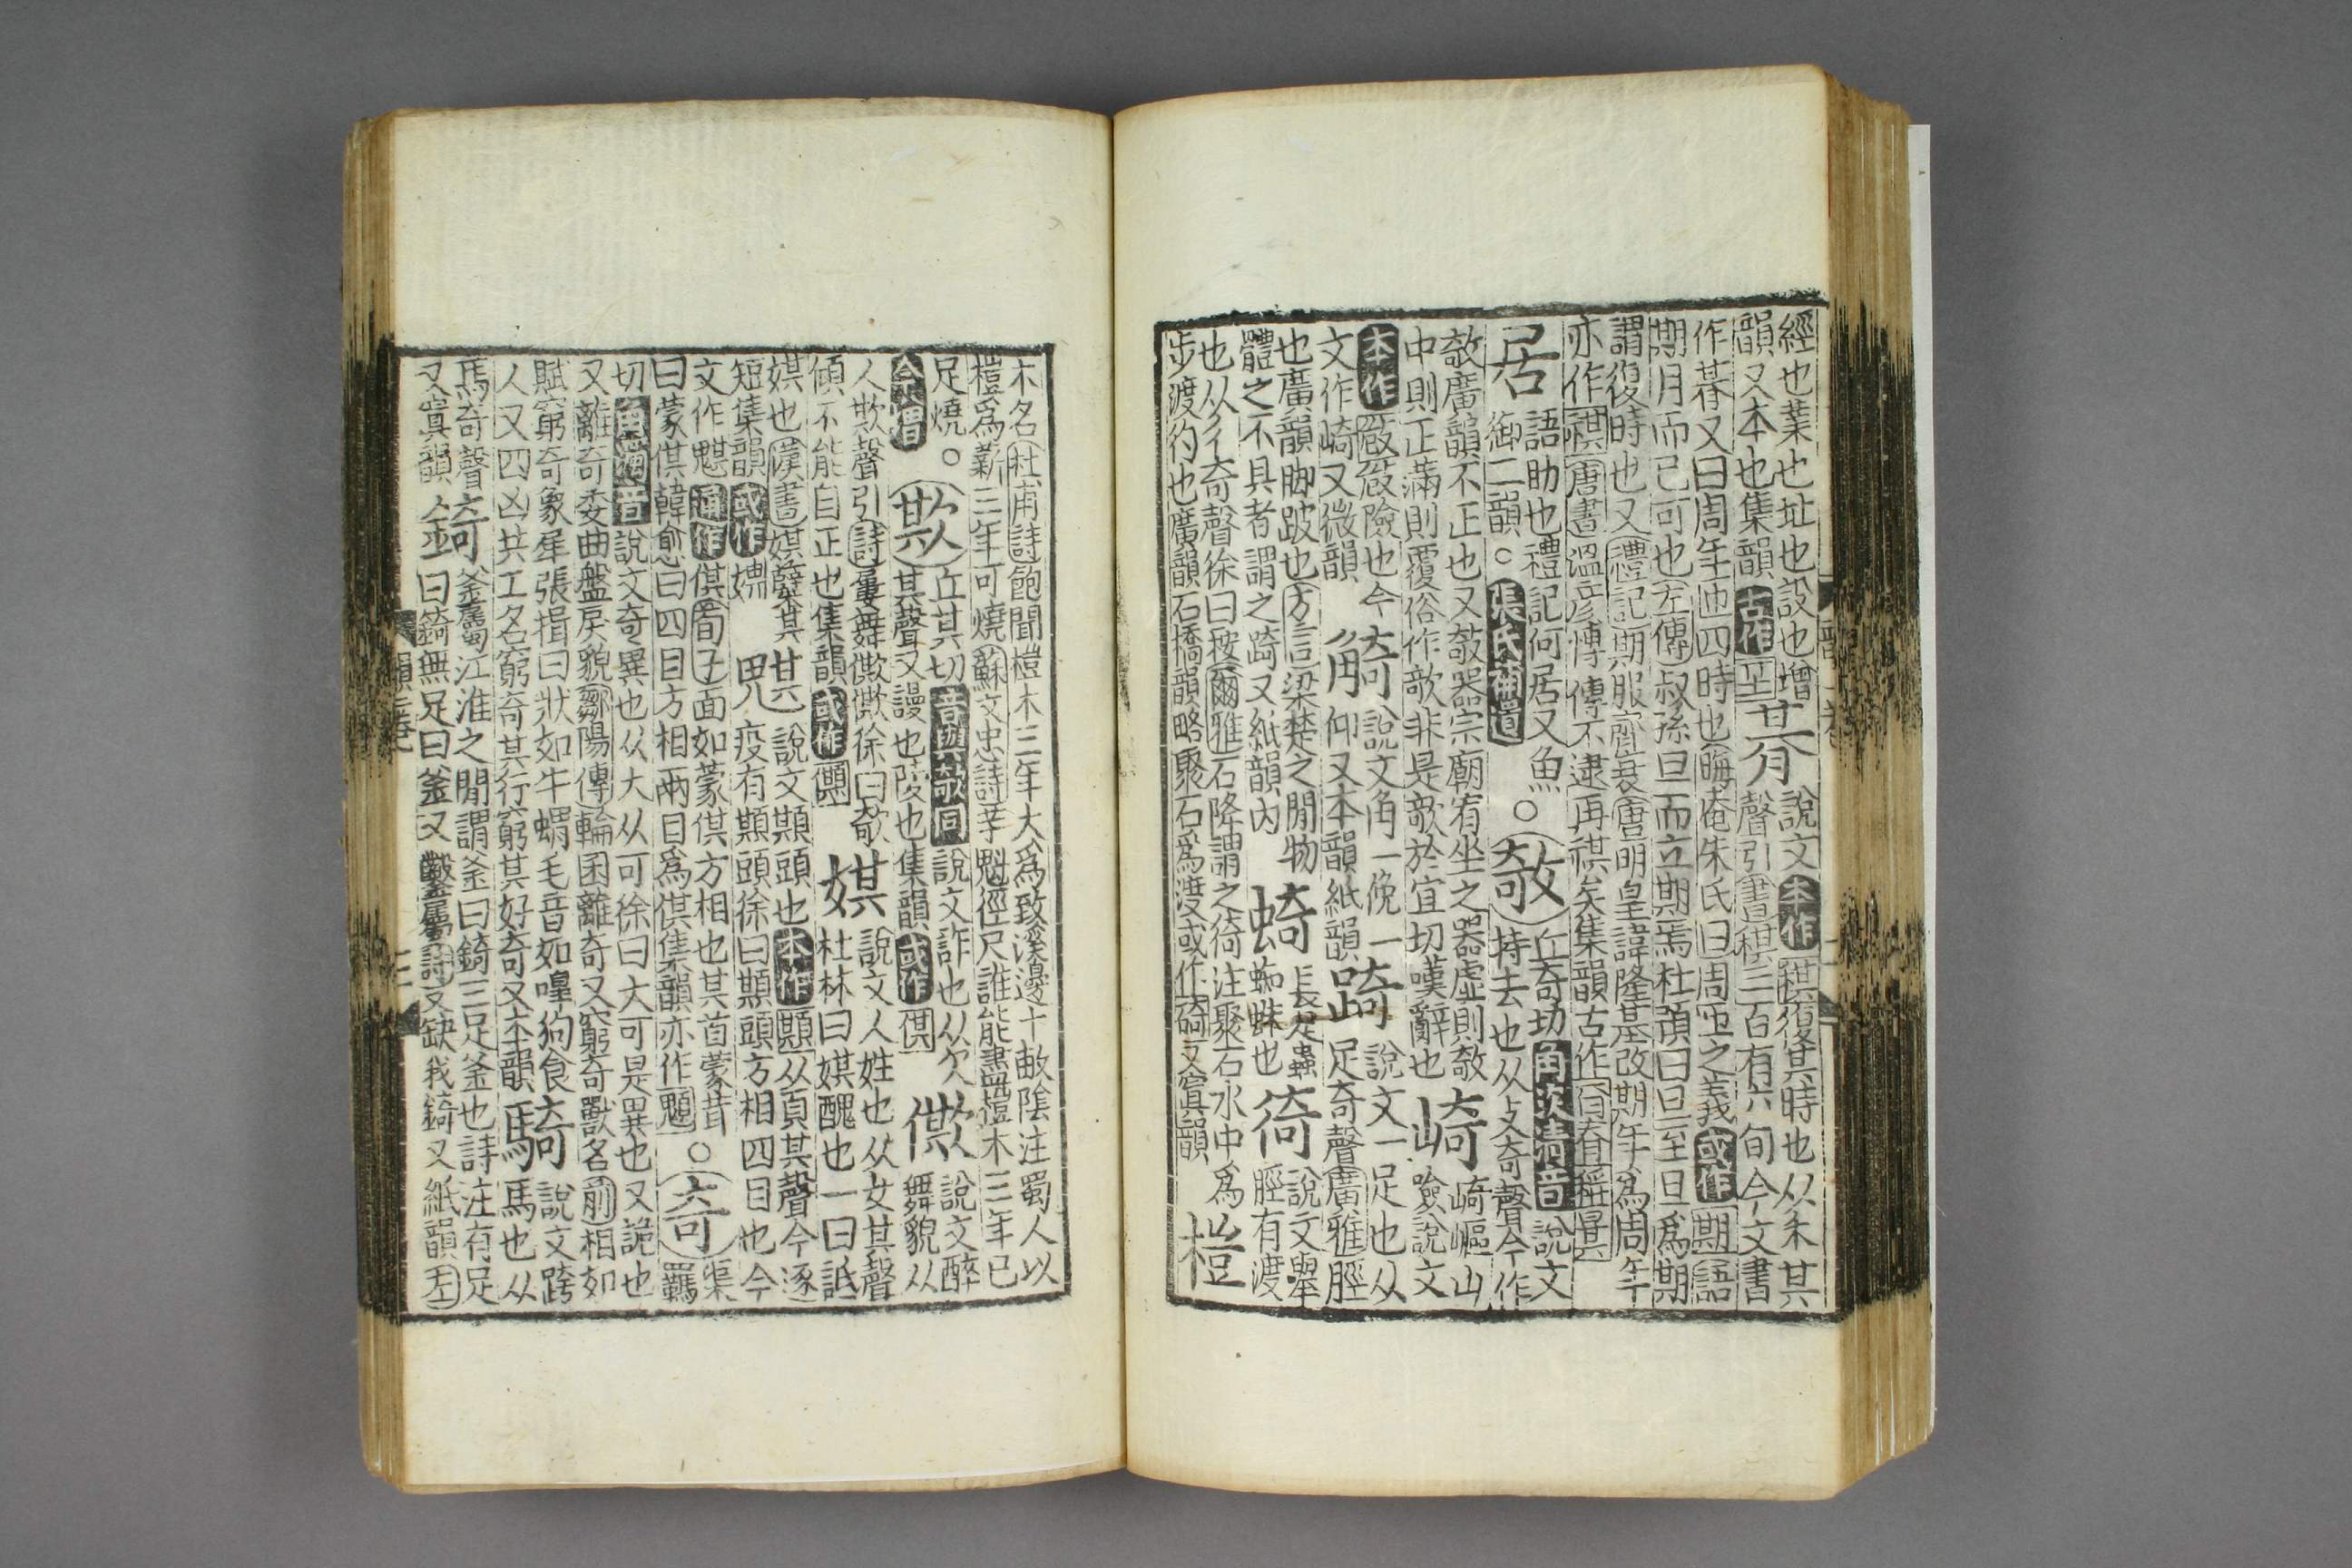 經也業也址也設也增
韻又本也集韻古作𠀠
朞說文本作稘復其時也从禾其
聲引書稘三百有六旬今文書
作朞又曰周年帀四時也晦庵朱氏曰周帀之義或作期語
期月而已可也左傳叔孫旦而立期焉杜預曰旦至旦爲期
謂復時也又禮記期服齊衰唐明皇諱隆基改期年爲周年
亦作祺唐書溫彥博傳不逮再祺矣集韻古作
居語助也禮記何居又魚
御二韻○張氏補遺○
㩻丘奇切角次清音說文
持去也从攴奇聲今作
㩻廣韻不正也又㩻器宗廟宥坐之器虛則㩻
中則正滿則覆俗作欹非是欹於宜切嘆辭也
崎崎嶇山
險說文
本作㕒㕒險也今
文作崎又微韻
觭說文角一俛一
仰又本韻紙韻
踦說文一足也从
足奇聲廣雅脛
也廣韻脚跛也方言梁楚之閒物
體之不具者謂之踦又紙韻內
䗁長足蟲
蜘蛛也
徛說文舉
脛有渡
也从彳奇聲徐曰按爾雅石降謂之徛注聚石水中爲
步渡彴也廣韻石橋韻略聚石爲渡或作碕又寘韻
榿
木名杜甫詩飽聞榿木三年大爲致溪邊十畝陰注蜀人以
榿爲薪三年可燒蘇文忠詩芋魁徑尺誰能盡榿木三年已
足燒○
㰟丘其切音與㩻同說文詐也从欠
其聲又謾也陵也集韻或作倛
僛說文醉
舞貌从
人㰟聲引詩屢舞僛僛徐曰㩻
傾不能自正也集韻或作
娸說文人姓也从女其聲
杜林曰娸醜也一曰詆
娸也漢書娸孽其
短集韻或作嬶
䫏說文䫏頭也本作䫏从頁其聲今逐
疫有䫏頭徐曰䫏頭方相四目也今
文作魌通作倛荀子面如蒙倛方相也其首蒙茸
曰蒙倛韓愈曰四目方相兩目爲倛集韻亦作䰇
○奇渠
羈
切角濁音說文奇異也从大从可徐曰大可是異也又詭也
又離奇委曲盤戾貌鄒陽傳輪囷離奇又窮奇獸名前相如
賦窮奇象犀張揖曰狀如牛蝟毛音如嘷狗食
人又四凶共工名窮奇其行窮其好奇又本韻
騎說文跨
馬也从
馬奇聲
又寘韻
錡釜屬江淮之閒謂釜曰錡三足釜也詩注有足
曰錡無足曰釜又鑿屬詩又缺我錡又紙韻左